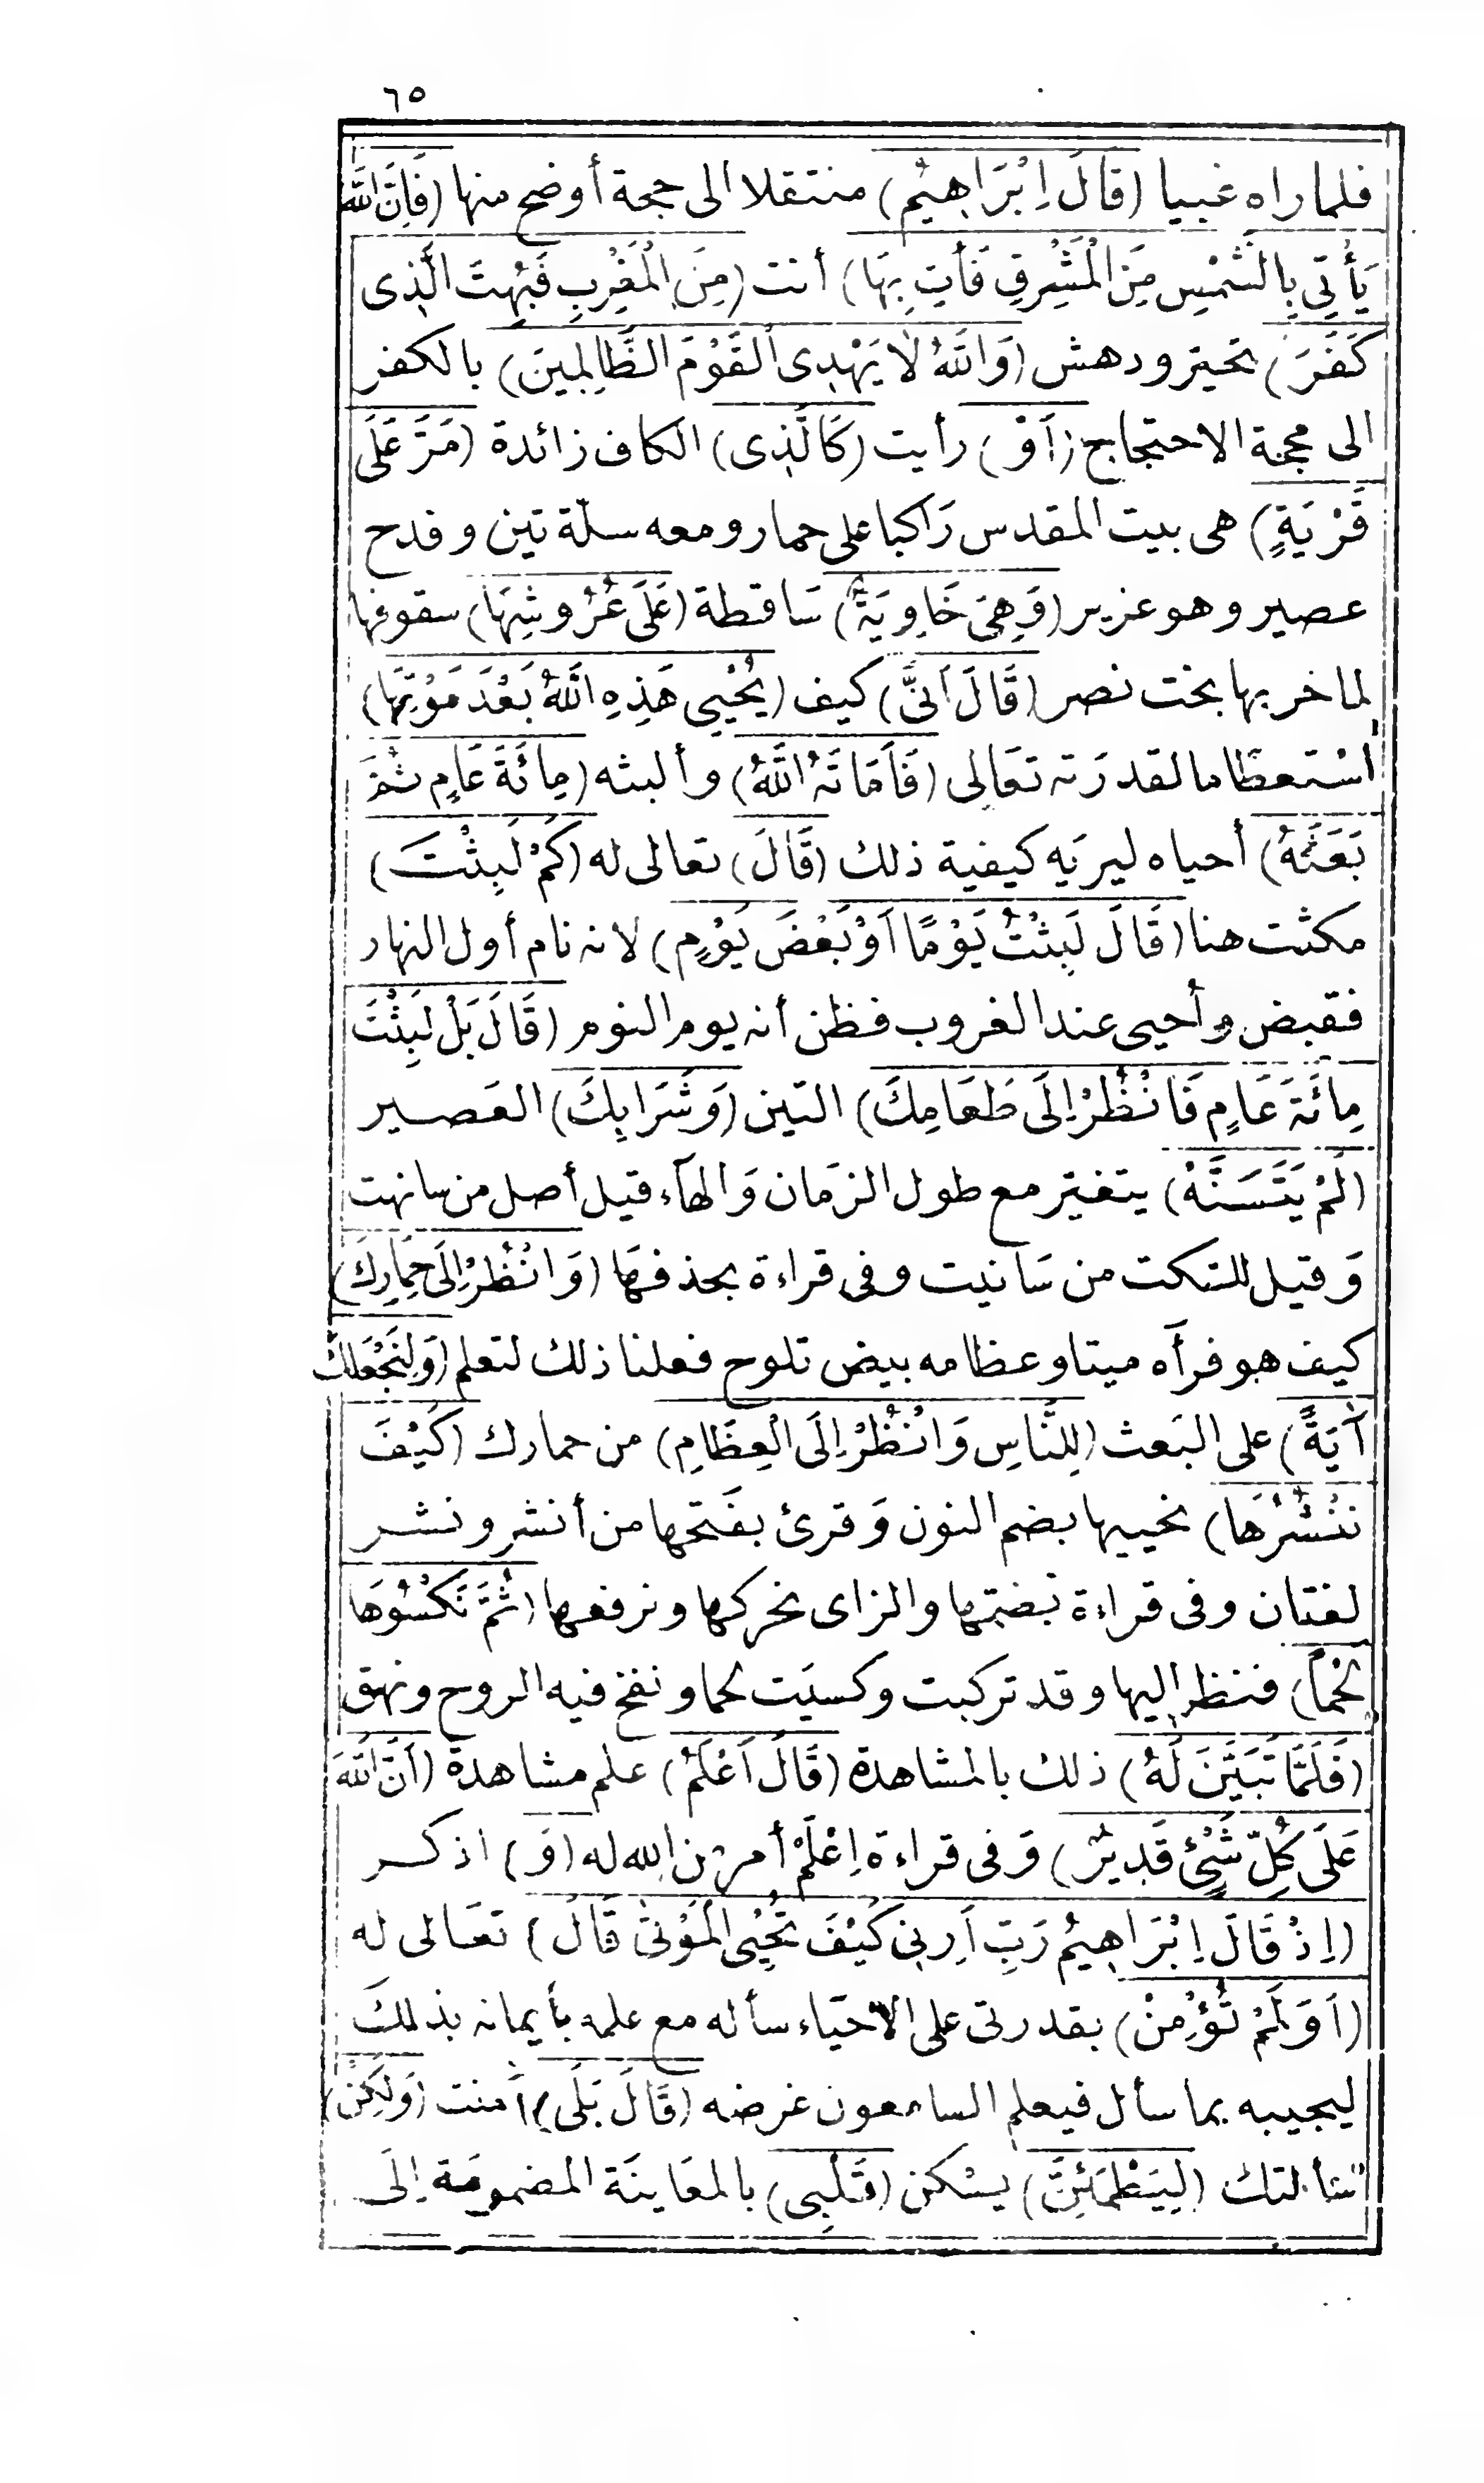 ٦٥
فلما راه غبيا (قَالَ اِبْرَاهِيْمُ) منتقلا الى حجة أوضح منها (فَاِنَّ اللّٰهَ
يَأْتِى بِالشَّمْسِ مِنَ الْمَشْرِقِ فَأْتِ بِهَا) أنت (مِنَ الْمَغْرِبِ فَبُهِتَ الَّذِى
كَفَرَ) تحيّر ودهش (وَاللّٰهُ لَا يَهْدِى الْقَوْمَ الظَّالِمِينَ) بالكفر
الى محجة الاحتجاج (اَوْ) رأيت (كَالَّذِى) الكاف زائدة (مَرَّ عَلَى
قَرْيَةٍ) هى بيت المقدس رَاكبا على حمار ومعه سلّة تين وقدح
عصير وهو عزير (وَهِىَ خَاوِيَةٌ) سَاقطة (عَلَى عُرُوشِهَا) سقوفها
لما خربها بخت نصر (قَالَ اَنّٰى) كيف (يُحْيِى هَذِهِ اللّٰهُ بَعْدَ مَوْتِهَا)
اسْتعظاما لقدرَته تعَالى (فَاَمَاتَهُ اللّٰهُ) وألبثه (مِائَةَ عَامٍ ثُمَّ
بَعَثَهُ) أحياه ليريَه كيفية ذلك (قَالَ) تعَالى له (كَمْ لَبِثْتَ)
مكثت هنا (قَالَ لَبِثْتُ يَوْمًا اَوْ بَعْضَ يَوْمٍ) لانه نام أول النهار
فقبض وأحيى عند الغروب فظن أنه يوم النوم (قَالَ بَلْ لَبِثْتَ
مِائَةَ عَامٍ فَانْظُرْ اِلَى طَعَامِكَ) التين (وَشَرَابِكَ) العَصير
(لَمْ يَتَسَنَّهْ) يتغيّر مع طول الزمَان وَالهآء قيل أصل من سانهت
وَقيل للسّكت من سَانيت وفى قراءة بحذفهَا (وَانْظُرْ اِلَى حِمَارِكَ)
كيف هو فرآه ميتا وعظامه بيض تلوح فعلنا ذلك لتعلم (وَلِنَجْعَلَكَ
آيَةً) على البَعث (لِلنَّاسِ وَانْظُرْ اِلَى الْعِظَامِ) من حمارك (كَيْفَ
نُنْشِرُهَا) نحييها بضم النون وَقرئ بفَتحها من أنشر ونشر
لغتان وفى قراءة بضمّها والزاى نحركها ونرفعها (ثُمَّ نَكْسُوهَا
لَحْمًا) فنظر اليها وقد تركبت وكسيَت لحما ونفخ فيه الروح ونهق
(فَلَمَّا تَبَيَّنَ لَهُ) ذلك بالمشاهدة (قَالَ اَعْلَمُ) علم مشاهدة (اَنَّ اللّٰهَ
عَلَى كُلِّ شَىْءٍ قَدِيرٌ) وَفى قراءة اِعْلَمْ أمر من الله له (وَ) اذكر
(اِذْ قَالَ اِبْرَاهِيمُ رَبِّ اَرِنِى كَيْفَ تُحْيِى الْمَوْتَى قَالَ) تعَالى له
(اَوَلَمْ تُؤْمِنْ) بقدرتى على الاحيَاء سأله مع علمه بأيمانه بذلك
ليجيبه بما سأل فيعلم السامعون غرضه (قَالَ بَلَى) آمنت (وَلَكِنْ)
سألتك (لِيَطْمَئِنَّ) يسْكن (قَلْبِى) بالمعَاينَة المضمومَة اِلَى